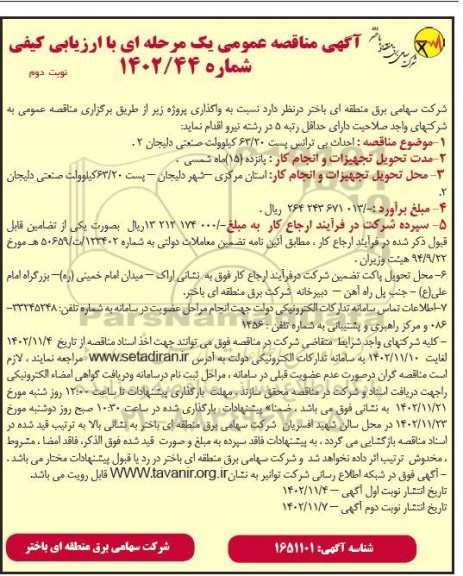 آگهی مناقصه عمومی یک مرحله ای با ارزیابی کیفی
شماره ۱۴۰۲/۴۴
نوبت دوم
شرکت سهامی برق منطقه ای باختر درنظر دارد نسبت به واگذاری پروژه زیر از طریق برگزاری مناقصه عمومی به
شرکتهای واجد صلاحیت دارای حداقل رتبه ۵ در رشته نیرو اقدام نماید:
۱-موضوع مناقصه : احداث بی ترانس پست ۶۳/۲۰ کیلوولت صنعتی دلیجان ۲ .
۲-مدت تحویل تجهیزات و انجام کار : پانزده (۱۵)ماه شمسی .
۳- محل تحویل تجهیزات و انجام کار: استان مرکزی –شهر دلیجان – پست ۶۳/۲۰کیلوولت صنعتی دلیجان
۲.
۴- مبلغ برآورد :-/۰۱۳ ۶۷۱ ۲۴۳ ۲۶۴ ریال .
۵- سپرده شرکت در فرآیند ارجاع کار به مبلغ-/۰۰۰ ۱۷۴ ۲۱۲ ۱۳ریال بصورت یکی از تضامین قابل
قبول ذکر شده در فرآیند ارجاع کار ، مطابق آئین نامه تضمین معاملات دولتی به شماره ۱۲۳۴۰۲/ت۵۰۶۵۹ هـ مورخ
۹۴/۹/۲۲ هیئت وزیران .
۶- محل تحویل پاکت تضمین شرکت درفرآیند ارجاع کار فوق به نشانی اراک – میدان امام خمینی (ره)– بزرگراه امام
علی(ع) – جنب پل راه آهن – دبیرخانه شرکت برق منطقه ای باختر.
۷-اطلاعات تماس سامانه تدارکات الکترونیکی دولت جهت انجام مراحل عضویت در سامانه به شماره تلفن: ۳۳۲۴۵۲۴۸-
۰۸۶ و مرکز راهبری و پشتیبانی به شماره تلفن : ۱۴۵۶
- کلیه شرکتهای واجد شرایط متقاضی شرکت در مناقصه فوق می توانند جهت اخذ اسناد مناقصه از تاریخ ۱۴۰۲/۱۱/۴
لغایت ۱۴۰۲/۱۱/۱۰ به سامانه تدارکات الکترونیکی دولت به آدرس www.setadiran.ir مراجعه نمایند ، لازم
است مناقصه گران درصورت عدم عضویت قبلی در سامانه ، مراحل ثبت نام درسامانه ودریافت گواهی امضاء الکترونیکی
راجهت دریافت اسناد و شرکت در مناقصه محقق سازند. مهلت بارگذاری پیشنهادات تا ساعت ۱۲:۰۰ روز شنبه مورخ
۱۴۰۲/۱۱/۲۱ به نشانی فوق می باشد ، ضمناً پیشنهادات بارگذاری شده در ساعت ۱۰:۳۰ صبح روز دوشنبه مورخ
۱۴۰۲/۱۱/۲۳ در محل سالن شهید افسریان شرکت سهامی برق منطقه ای باختر به نشانی بالا به ترتیب قید شده در
اسناد مناقصه بازگشایی می گردد ، به پیشنهادات فاقد سپرده به مبلغ و صورت قید شده فوق الذکر، فاقد امضا ، مشروط
، مخدوش ترتیب اثر داده نخواهد شد و شرکت سهامی برق منطقه ای باختر در رد یا قبول پیشنهادات مختار می باشد .
- آگهی فوق در شبکه اطلاع رسانی شرکت توانیر به نشانی WWW.tavanir.org.ir قابل رویت می باشد.
تاریخ انتشار نوبت اول آگهی – ۱۴۰۲/۱۱/۴
تاریخ انتشار نوبت دوم آگهی – ۱۴۰۲/۱۱/۷
شناسه آگهی: ۱۶۵۱۱۰۱
شرکت سهامی برق منطقه ای باختر